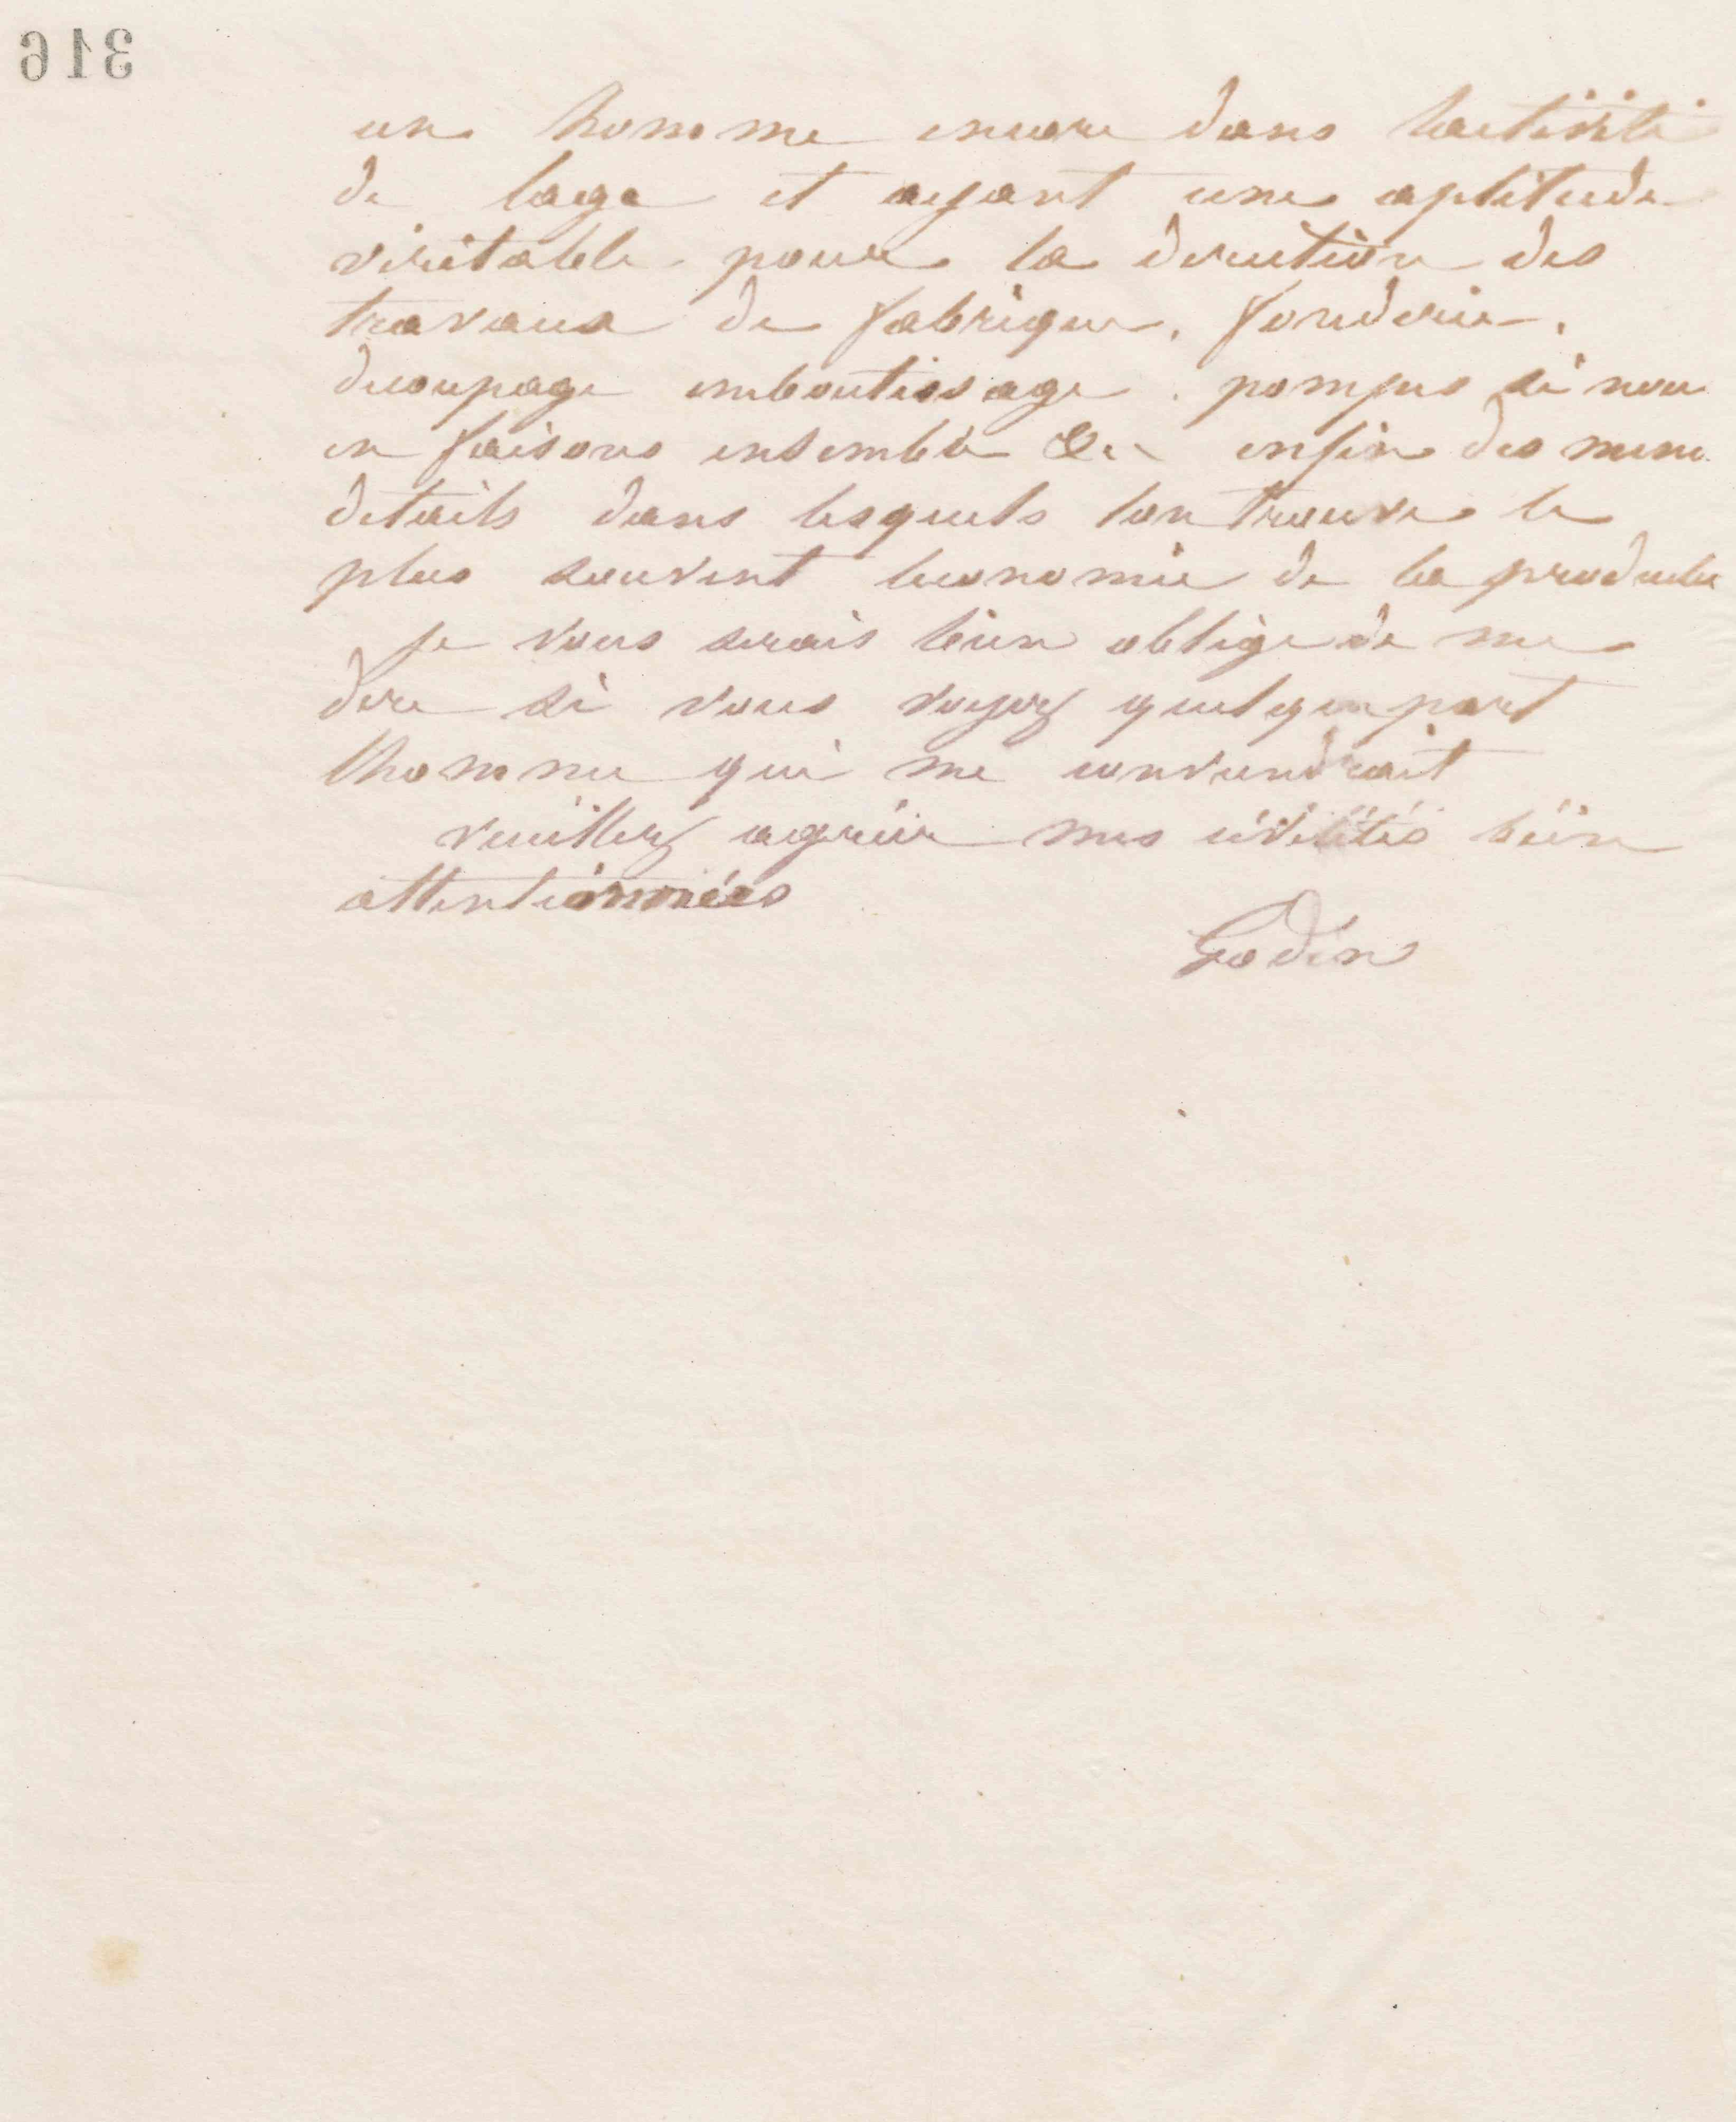 316
un homme encore dans lactivité
de lage et ayant une aptitude
véritable pour la direction des
travaux de fabrique, fonderie,
decoupage emboutissage, pompes si nous
en faisons ensemble &c enfin des menu
details dans lesquels lon trouve le
plus souvent leconomie de la
je vous serais bien obligé de me
dire si vous voyez quelque part
lhomme qui me conviendrait
veuillez agréer mes civilités bien
attentionnées
Godin